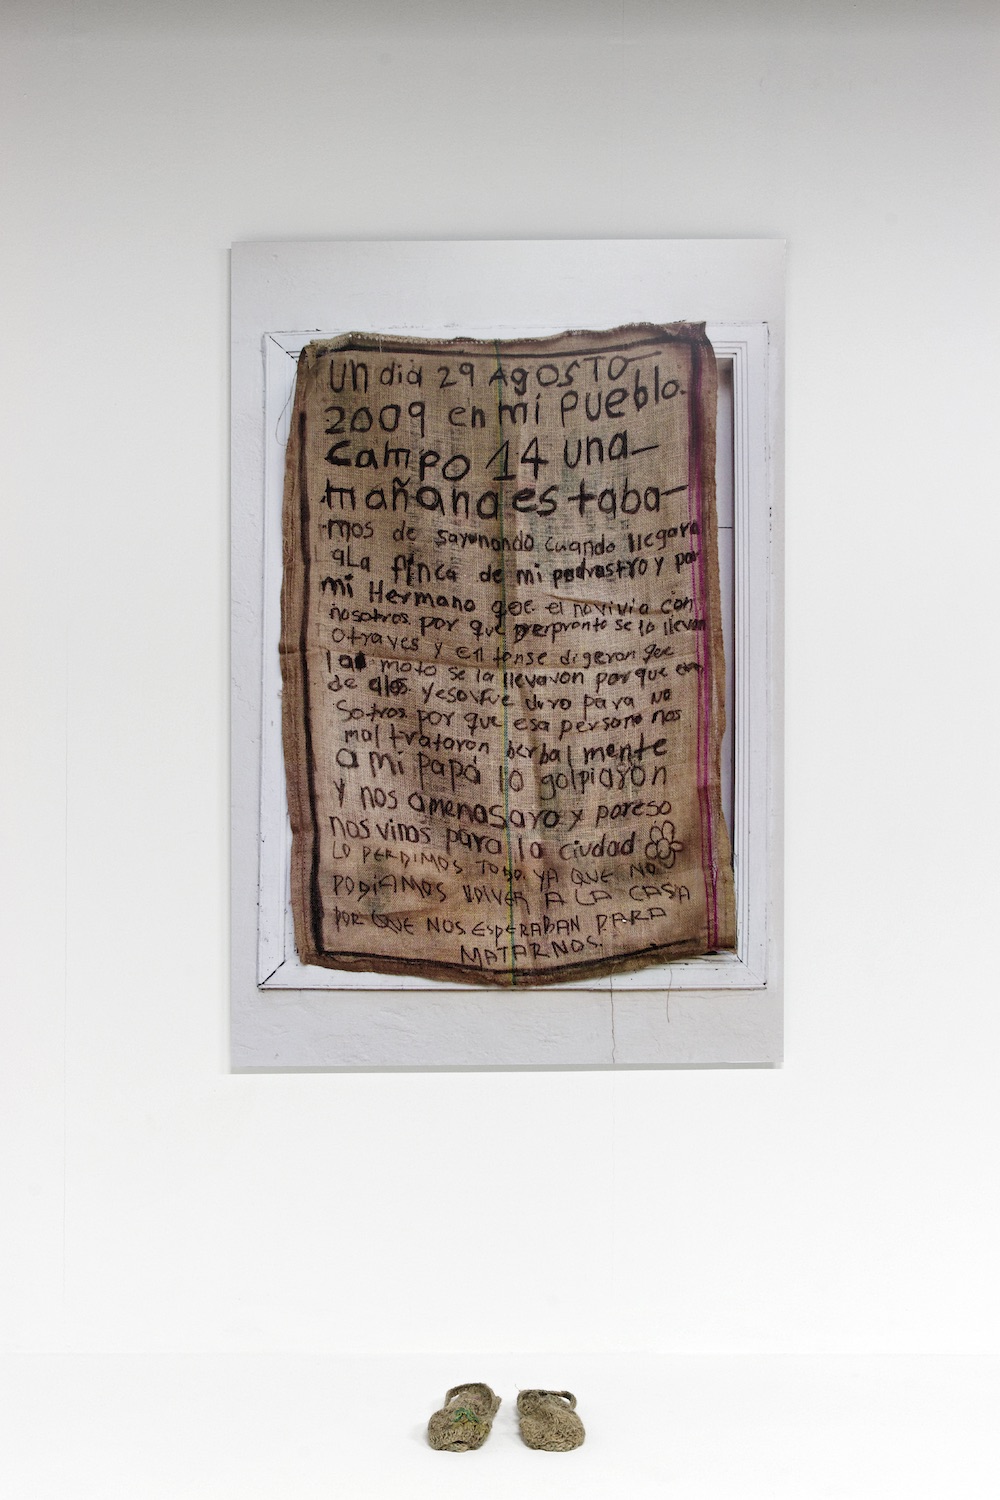 un dia 29 AgOSTO
2009 en mi pueblo.
Campo 14 una-
mañana estaba-
mos de sayunando cuando llegaro
aLa finca de mi padrastro y por
mi Hermano que el no vivia con
nosotros. por que se lo llevan
otraves y en tonse digeron que
la moto se la llevavon porque era
de ellos. yesovfue duro para no
Sotros por que esa persona nos
mal trataron berbal mente
a mi papá lo golpiaron
y nos amenasaro y poreso
nos vinos para la ciudad
LO PERDIMOS TODO. YA QUE NO
PODIAMOS VOLVER A LA CASA
POR QUE NOS ESPERABAN PARA
MATARNOS.